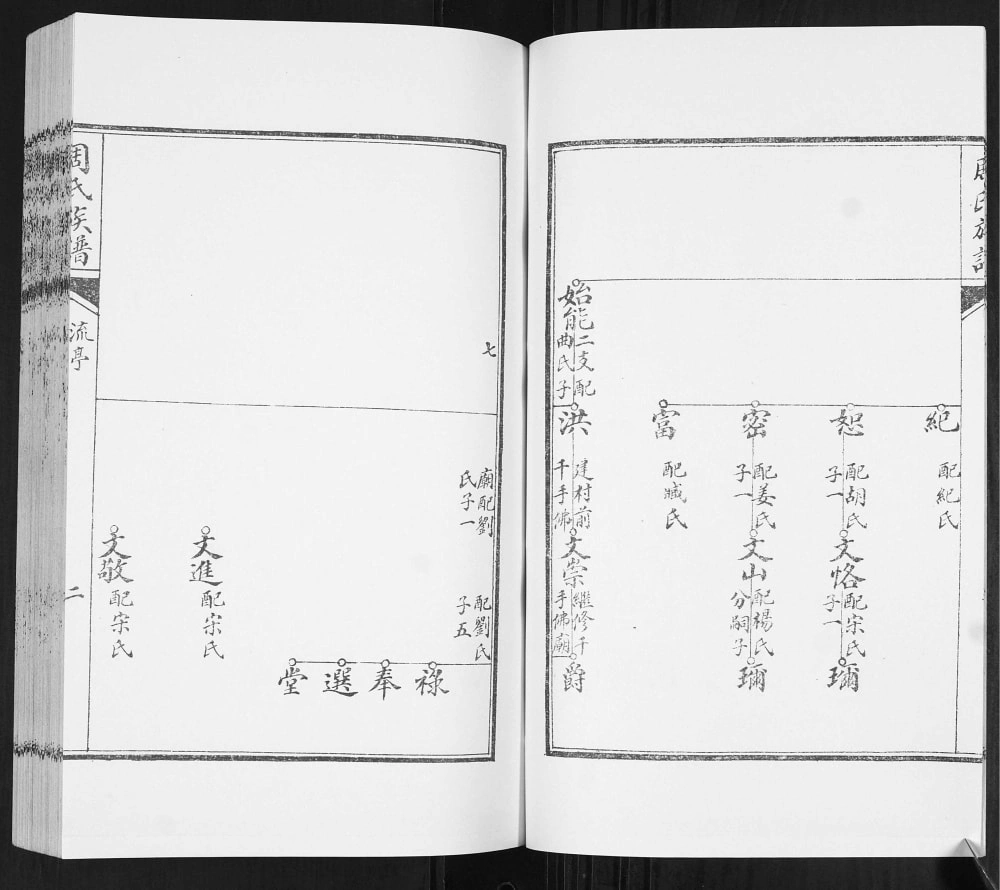 周氏族譜
紀
配紀氏
恕
配胡氏
子一
文恪
配宋氏
子一
瑂
密
配姜氏
子一
文山
配楊氏
分嗣子
瑂
富
配臧氏
始能
二支配
曲氏子
洪
建村前
千手佛
文崇
繼修千
手佛廟
爵
七
廟配劉
氏子一
配劉氏
子五
祿
奉
選
堂
文進
配宋氏
文敬
配宋氏
周氏族譜
流亭
二